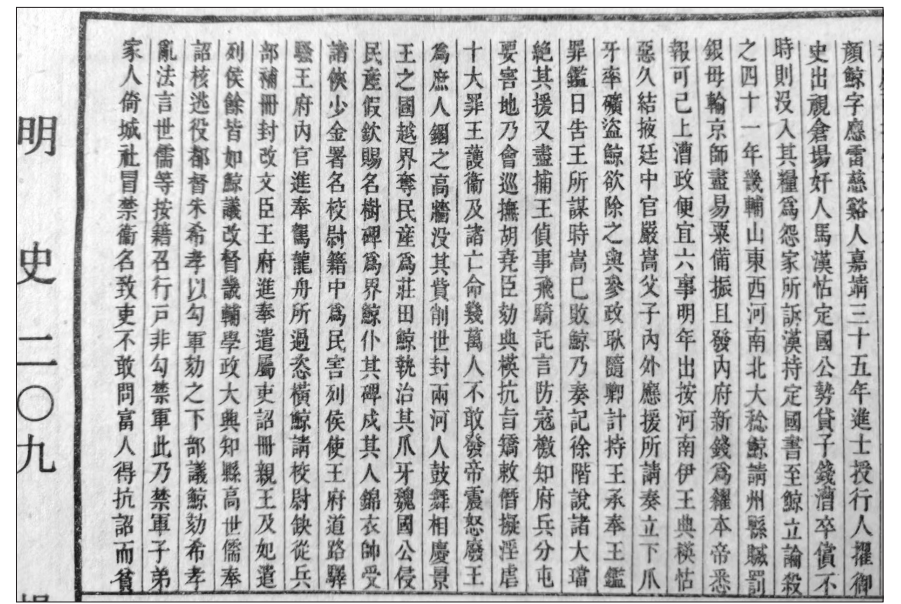 顏鯨字應雷慈谿人嘉靖三十五年進士授行人擢御
史出視倉場奸人馬漢怙定國公勢貸子錢漕卒償不
時則沒入其糧爲怨家所訴漢持定國書至鯨立論殺
之四十一年畿輔山東西河南北大稔鯨請州縣贓罰
銀毋輸京師盡易粟備振且發內府新錢爲糴本帝悉
報可已上漕政便宜六事明年出按河南伊王典楧怙
惡久結掖廷中官嚴嵩父子內外應援所請奏立下爪
牙率礦盜鯨欲除之與參政耿隨卿計持王承奉王鑑
罪鑑日告王所謀時嵩已敗鯨乃奏記徐階說諸大璫
絕其援又盡捕王偵事飛騎託言防寇檄知府兵分屯
要害地乃會巡撫胡堯臣劾典楧抗旨矯敕僭擬淫虐
十大罪王護衞及諸亡命幾萬人不敢發帝震怒廢王
爲庶人錮之高牆沒其貲削世封兩河人鼓舞相慶景
王之國越界奪民產爲莊田鯨執治其爪牙魏國公侵
民產假欽賜名樹碑爲界鯨仆其碑戍其人錦衣帥受
諸俠少金署名校尉籍中爲民害列侯使王府道路驛
騷王府內官進奉駕龍舟所過恣橫鯨請校尉缺從兵
部補冊封改文臣王府進奉遣屬吏詔冊親王及妃遣
列侯餘皆如鯨議改督畿輔學政大興知縣高世儒奉
詔核逃役都督朱希孝以勾軍劾之下部議鯨劾希孝
亂法言世儒等按籍召行戶非勾禁軍此乃禁軍子弟
家人倚城社冒禁衞名致吏不敢問富人得抗詔而貧
明史二〇九